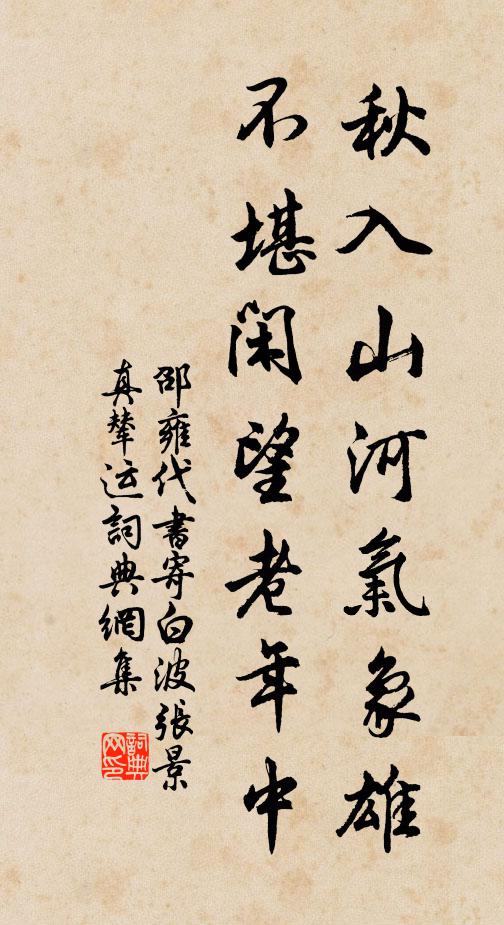 秋入山河氣象雄
不堪閑望老年中
邵雍代書寄白波張景
真輦运詞典網集
詞典网印